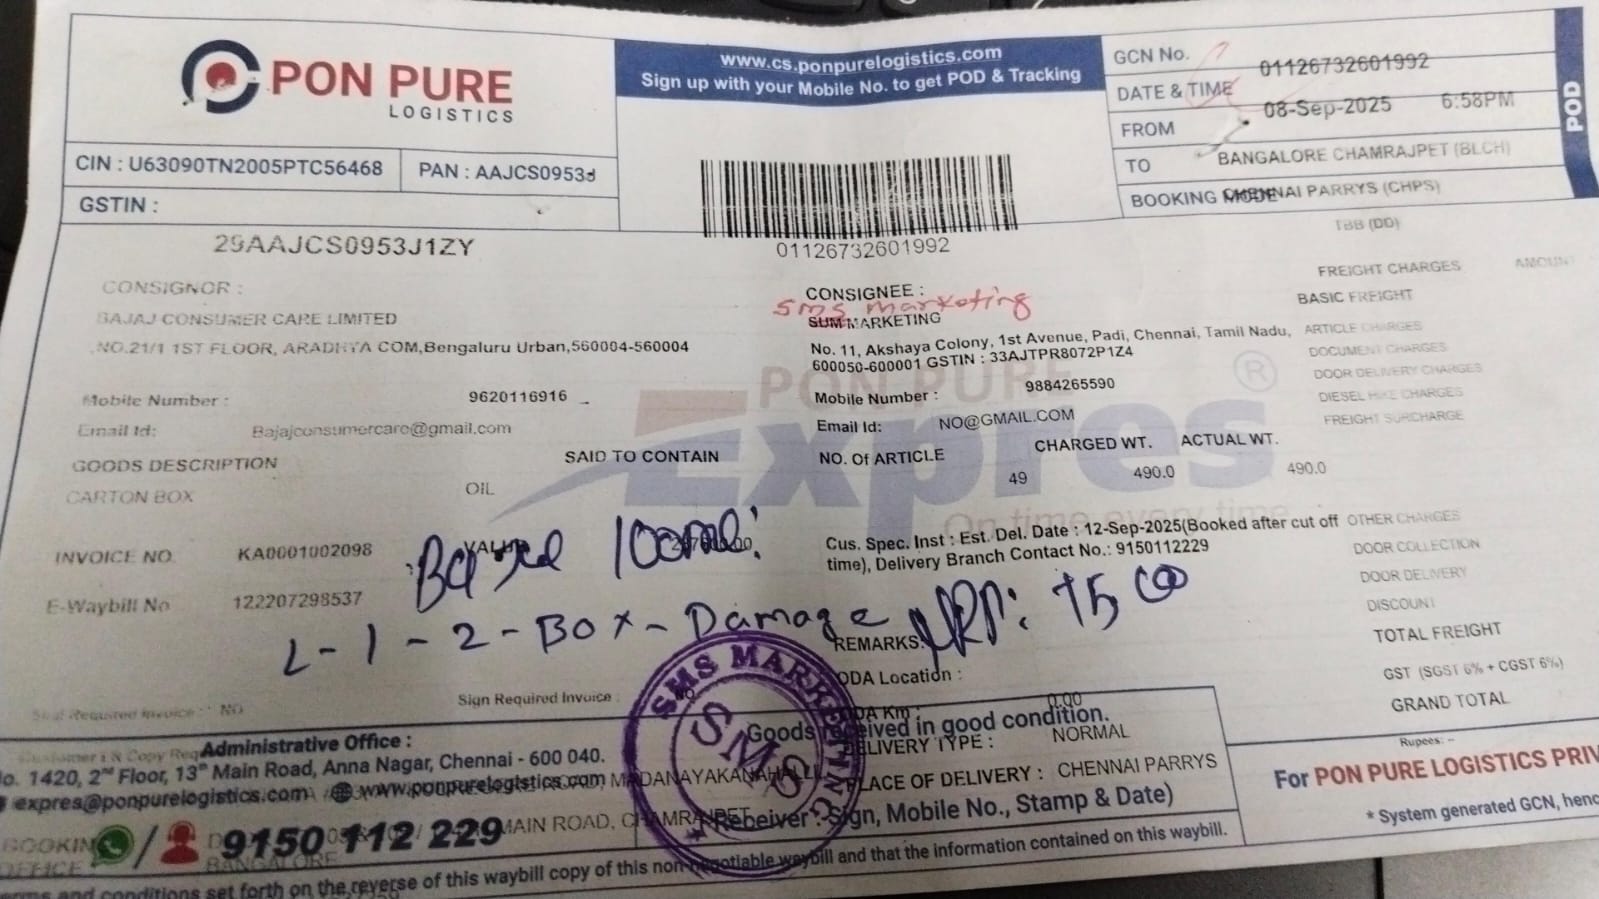 PON PURE
LOGISTICS
www.cs.ponpurelogistics.com
Sign up with your Mobile No. to get POD & Tracking
GCN No.
01126732601992
DATE & TIME
08-Sep-2025 6:58PM
FROM
BANGALORE CHAMRAJPET (BLCH)
TO
CHENNAI PARRYS (CHPS)
BOOKING MODE
TBB (DD)
POD
CIN : U63090TN2005PTC56468
PAN : AAJCS0953J
GSTIN :
29AAJCS0953J1ZY
01126732601992
CONSIGNOR :
BAJAJ CONSUMER CARE LIMITED
NO.21/1 1ST FLOOR, ARADHYA COM,Bengaluru Urban,560004-560004
Mobile Number : 9620116916
Email Id: Bajajconsumercare@gmail.com
CONSIGNEE :
SMS Marketing
SUM MARKETING
No. 11, Akshaya Colony, 1st Avenue, Padi, Chennai, Tamil Nadu,
600050-600001 GSTIN : 33AJTPR8072P1Z4
Mobile Number : 9884265590
Email Id: NO@GMAIL.COM
FREIGHT CHARGES AMOUNT
BASIC FREIGHT
ARTICLE CHARGES
DOCUMENT CHARGES
DOOR DELIVERY CHARGES
DIESEL HIKE CHARGES
FREIGHT SURCHARGE
PON PURE
Expres ®
On time every time
GOODS DESCRIPTION SAID TO CONTAIN NO. Of ARTICLE CHARGED WT. ACTUAL WT.
CARTON BOX OIL 49 490.0 490.0
INVOICE NO. KA0001002098 VALUE
E-Waybill No 122207298537
Cus. Spec. Inst : Est. Del. Date : 12-Sep-2025(Booked after cut off
time), Delivery Branch Contact No.: 9150112229
OTHER CHARGES
DOOR COLLECTION
DOOR DELIVERY
DISCOUNT
TOTAL FREIGHT
GST (SGST 6% + CGST 6%)
GRAND TOTAL
Rupees: -
100ml:
L-1-2-Box-Damage MRP: 75,00
REMARKS:
ODA Location :
ODA Km : 0.00
Seal Required Invoice : NO
Sign Required Invoice : NO
SMS MARKETING
SMS
Goods received in good condition.
DELIVERY TYPE : NORMAL
PLACE OF DELIVERY : CHENNAI PARRYS
Receiver : Sign, Mobile No., Stamp & Date)
Administrative Office :
No. 1420, 2nd Floor, 13th Main Road, Anna Nagar, Chennai - 600 040.
expres@ponpurelogistics.com www.ponpurelogistics.com
MADANAYAKANAHALLI
BOOKING OFFICE
9150 112 229
MAIN ROAD, CHAMRAJPET
BANGALORE
For PON PURE LOGISTICS PRIV
* System generated GCN, henc
terms and conditions set forth on the reverse of this waybill copy of this non-negotiable waybill and that the information contained on this waybill.